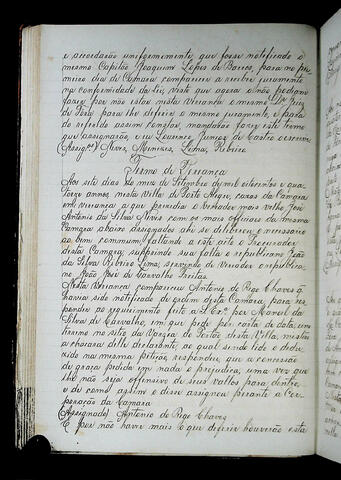 e accordarão uniformemente, que fosse notificado o
mesmo Capitão Joaquim Lopes de Barros, para no pri
meiro dia de Camara comparecer a receber juramento
na conformidade da Lei, visto que agora o não podião
fazer por não estar nesta Vereança o mesmo Dr. Juiz
de Fora para lhe deferir o juramento, e para
do referido assim constar, mandarão fazer este termo
que assignarão, e eu Lourenço de Castro o escrevi
(Assignados) Alves, Menezes, Lima, Ribeiro.
Termo de Vereança
Aos sete dias do mez de Setembro de mil oitocentos e qua
torze annos, nesta Villa de Porto Alegre, casas da Camara
em vereança a que presidio o Vereador mais velho José
Antonio da Silva Neves com os mais officiaes da mesma
Camara abaixo assignados ahi se deliberou o necessario
ao bem commum, faltando a este acto o Procurador
desta Camara, supprindo sua falta o republicano João
da Silva Ribeiro Lima, servindo de Vereador o republica
no João José de Carvalho Freitas.
Nesta Vereança compareceu Antonio de Chaves q.
havia sido notificado de ordem desta Camara para res
ponder ao requerimento feito a S. Ex.ª por Manoel da
Silva de Carvalho, em que pede por carta de data, um
terreno no sitio da Varzea do Portão desta Villa, mistico
a chacara delle declarante, ao qual sendo lido o dedu
zido na mesma petição, respondeu, que a concessão
da graça pedida em nada o prejudica, uma vez que
lhe não seja offensivo de seus vallos para dentro,
e de como assim o disse assignou perante a Cor
poração da Camara
(Assignado) Antonio de Chaves
E por não haver mais o que deferir houverão esta